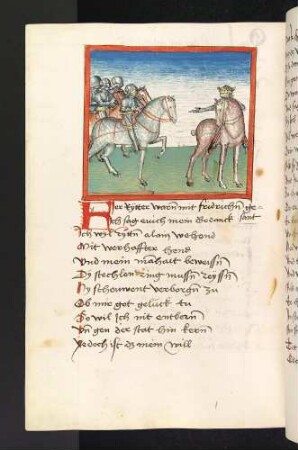 Der Rytter warn mit fridrichn ge=
Ich sag euch mein gedanck sant
Ich wil rytn alain
Mit verhaffter henk
Und mein manhait beweisn
Dy stechlen ring mussn reyssn
Dy schon went verborgn zu
Ob mir got gelück tu
So wil ich nit enbern
Vn gen der stat hin kern
Jedoch ist dz mein will